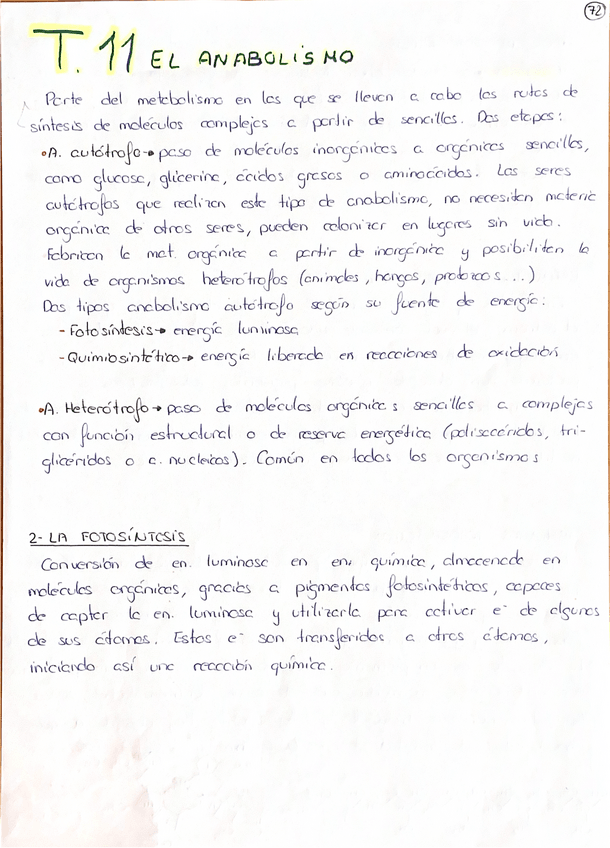 72
T. 11 EL ANABOLISMO
Parte del metabolismo en las que se llevan a cabo las rutas de
síntesis de moléculas complejas a partir de sencillas. Dos etapas:
•A. autótrofo→ paso de moléculas inorgánicas a orgánicas sencillas,
como glucosa, glicerina, ácidos grasos o aminoácidos. Los seres
autótrofos que realizan este tipo de anabolismo, no necesitan materia
orgánica de otros seres, pueden colonizar en lugares sin vida.
Fabrican la mat. orgánica a partir de inorgánica y posibilitan la
vida de organismos heterótrofos (animales, hongos, protozoos...)
Dos tipos anabolismo autótrofo según su fuente de energía:
- Fotosíntesis→ energía luminosa
- Quimiosintético→ energía liberada en reacciones de oxidación
•A. Heterótrofo→ paso de moléculas orgánicas sencillas a complejas
con función estructural o de reserva energética (polisacáridos, tri-
glicéridos o a. nucleicos). Común en todos los organismos
2- LA FOTOSÍNTESIS
Conversión de en. luminosa en en. química, almacenada en
moléculas orgánicas, gracias a pigmentos fotosintéticos, capaces
de captar la en. luminosa y utilizarla para activar e⁻ de algunos
de sus átomos. Estos e⁻ son transferidos a otros átomos,
iniciando así una reacción química.